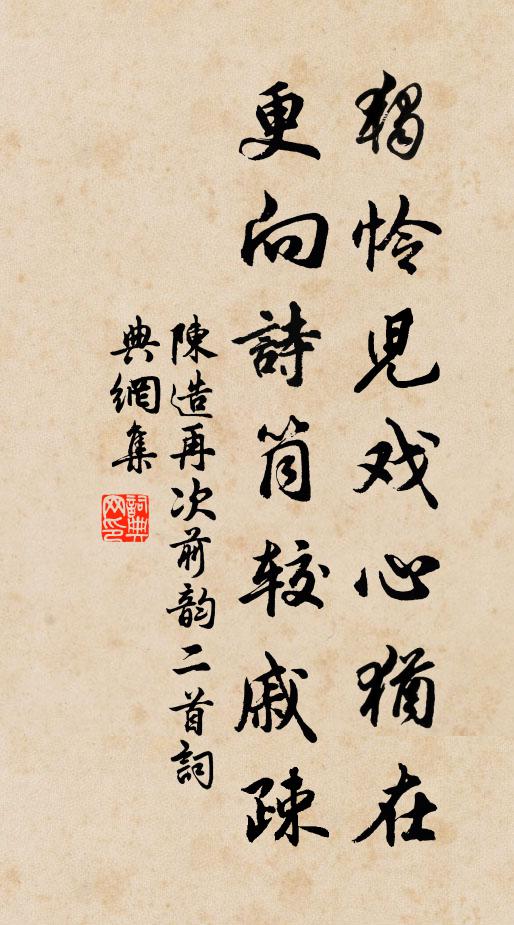 獨怜児戏心猶在
更向詩筒較戚疎
陳造再次前韵二首詞
典網集
詞典網印